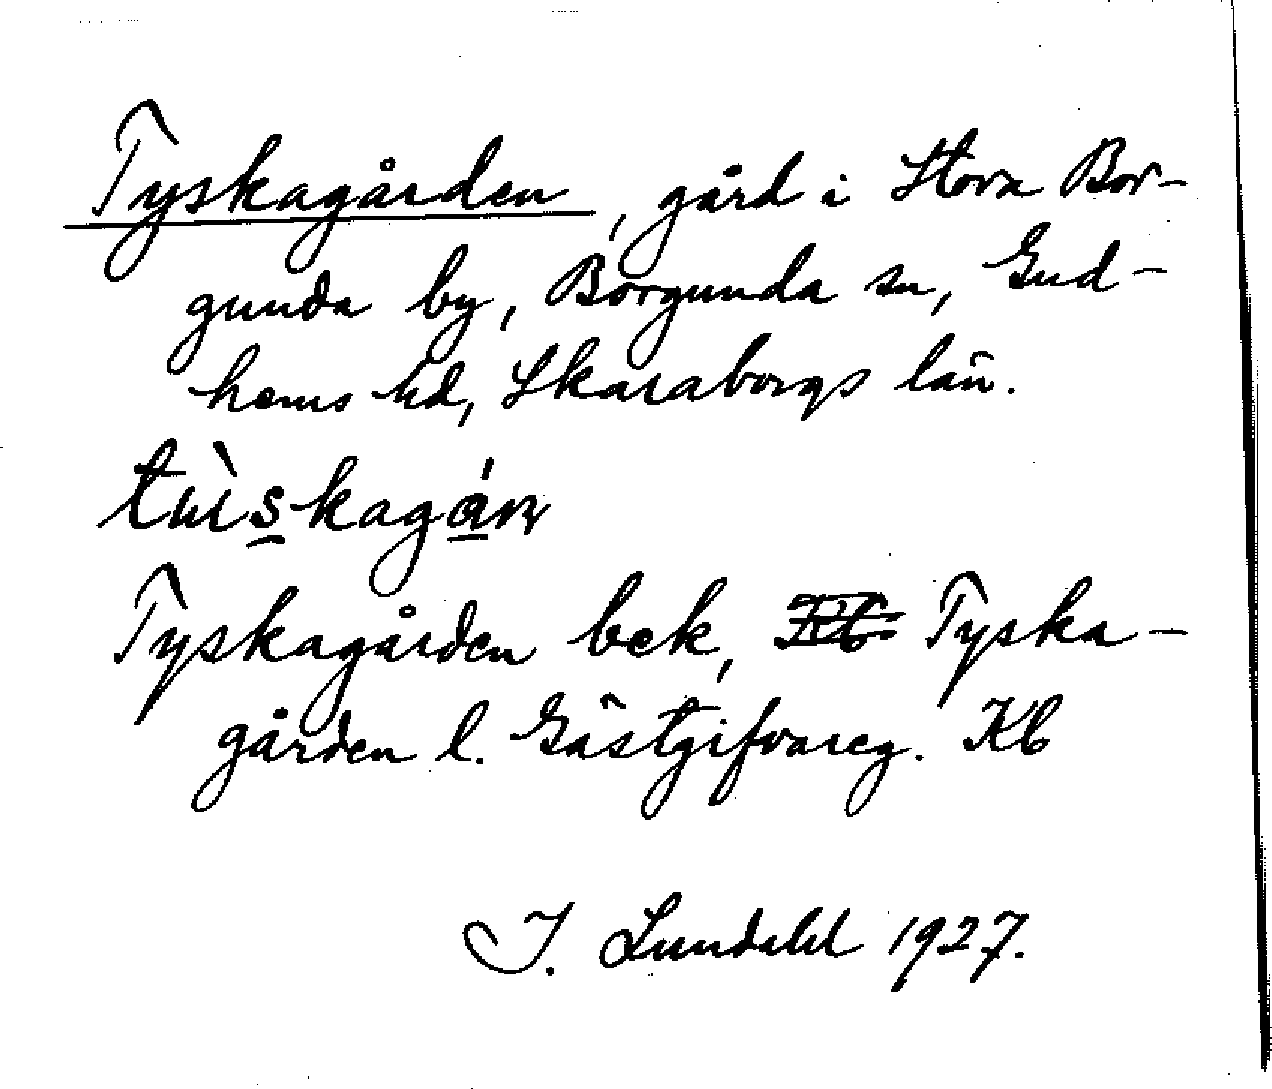 Tyskagården, gård i Stora Bor-
gunda by, Borgunda sn, Gud-
hems hd, Skaraborgs län.
Tyskagården bek, Tyska-
gården l. Gästgifvareg. Kb
I. Lundahl 1927.